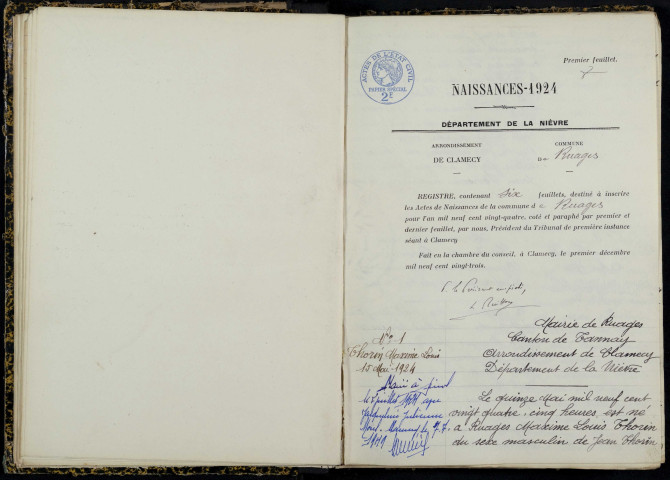 Premier feuillet.
ACTES DE L'ÉTAT CIVIL
PAPIER SPÉCIAL
2F
NAISSANCES-1924
DÉPARTEMENT DE LA NIÈVRE
ARRONDISSEMENT
DE CLAMECY
COMMUNE
De Ruages
REGISTRE, contenant six feuillets, destiné à inscrire
les Actes de Naissances de la commune d e Ruages
pour l'an mil neuf cent vingt-quatre, coté et paraphé par premier et
dernier feuillet, par nous, Président du Tribunal de première instance
séant à Clamecy
Fait en la chambre du conseil, à Clamecy, le premier décembre
mil neuf cent vingt-trois.
P. le Président
No 1
Thorin Maxime Louis
15 Mai 1924
Marié à
le juillet
Mairie de Ruages
Canton de Tannay
Arrondissement de Clamecy
Département de la Nièvre
Le quinze Mai mil neuf cent
vingt quatre, cinq heures, est né
a Ruages Maxime Louis Thorin
du sexe masculin de Jean Thorin